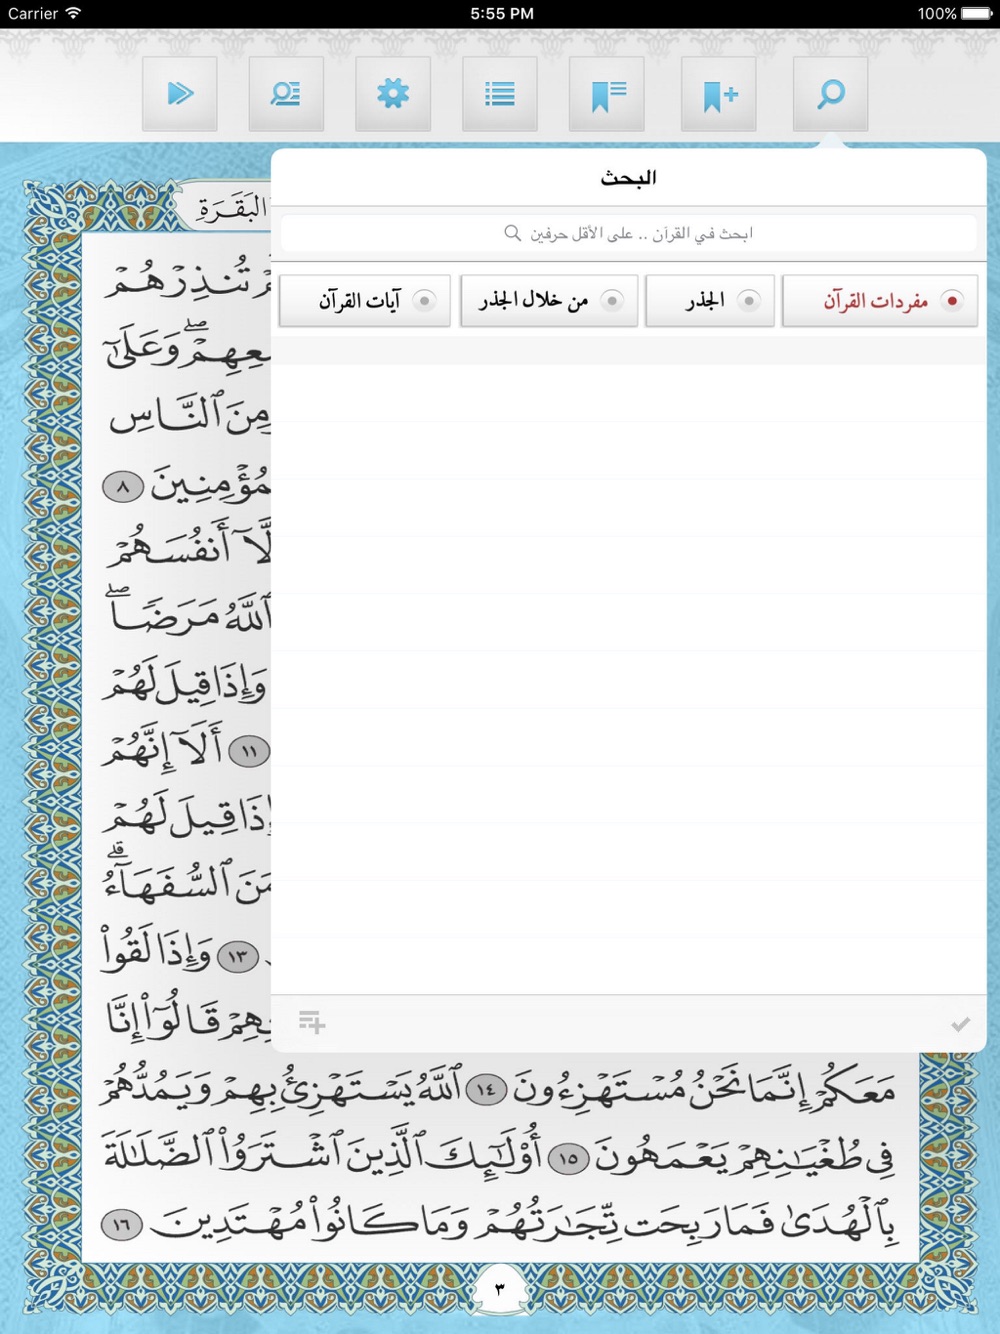 Carrier 5:55 PM 100%
البحث
ابحث في القرآن .. على الأقل حرفين
مفردات القرآن الجذر من خلال الجذر آيات القرآن
البَقَرَةِ
تُنذِرْهُمْ
وَعَلَىٰٓ
مِنَ ٱلنَّاسِ
٨
أَنفُسَهُمْ
ٱللَّهُ مَرَضًاۖ
وَإِذَا قِيلَ لَهُمْ
١١ أَلَآ إِنَّهُمْ
قِيلَ لَهُمْ
ٱلسُّفَهَآءُۗ
١٣ وَإِذَا لَقُوا۟
قَالُوٓا۟ إِنَّا
مَعَكُمْ إِنَّمَا نَحْنُ مُسْتَهْزِءُونَ ١٤ ٱللَّهُ يَسْتَهْزِئُ بِهِمْ وَيَمُدُّهُمْ
فِى طُغْيَـٰنِهِمْ يَعْمَهُونَ ١٥ أُو۟لَـٰٓئِكَ ٱلَّذِينَ ٱشْتَرَوُا۟ ٱلضَّلَـٰلَةَ
بِٱلْهُدَىٰ فَمَا رَبِحَت تِّجَـٰرَتُهُمْ وَمَا كَانُوا۟ مُهْتَدِينَ ١٦
٣